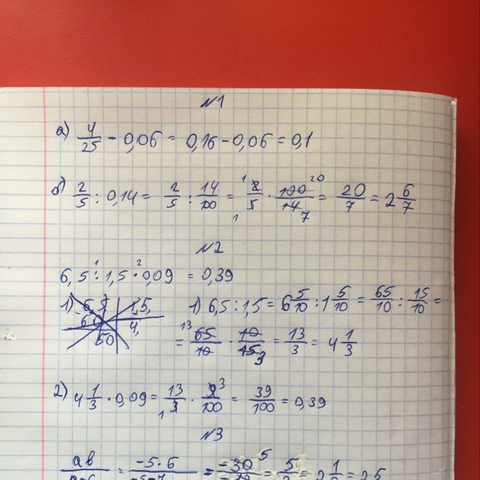 №1
а) 4/25 - 0,06 = 0,16 - 0,06 = 0,1
б) 2/5 : 0,14 = 2/5 : 14/100 = 2/5 · 100/14 = 20/7 = 2 6/7
№2
6,5 : 1,5 · 0,09 = 0,39
1) 6,5 : 1,5 = 6 5/10 : 1 5/10 = 65/10 : 15/10 =
= 65/10 · 10/15 = 13/3 = 4 1/3
2) 4 1/3 · 0,09 = 13/3 · 9/100 = 39/100 = 0,39
№3